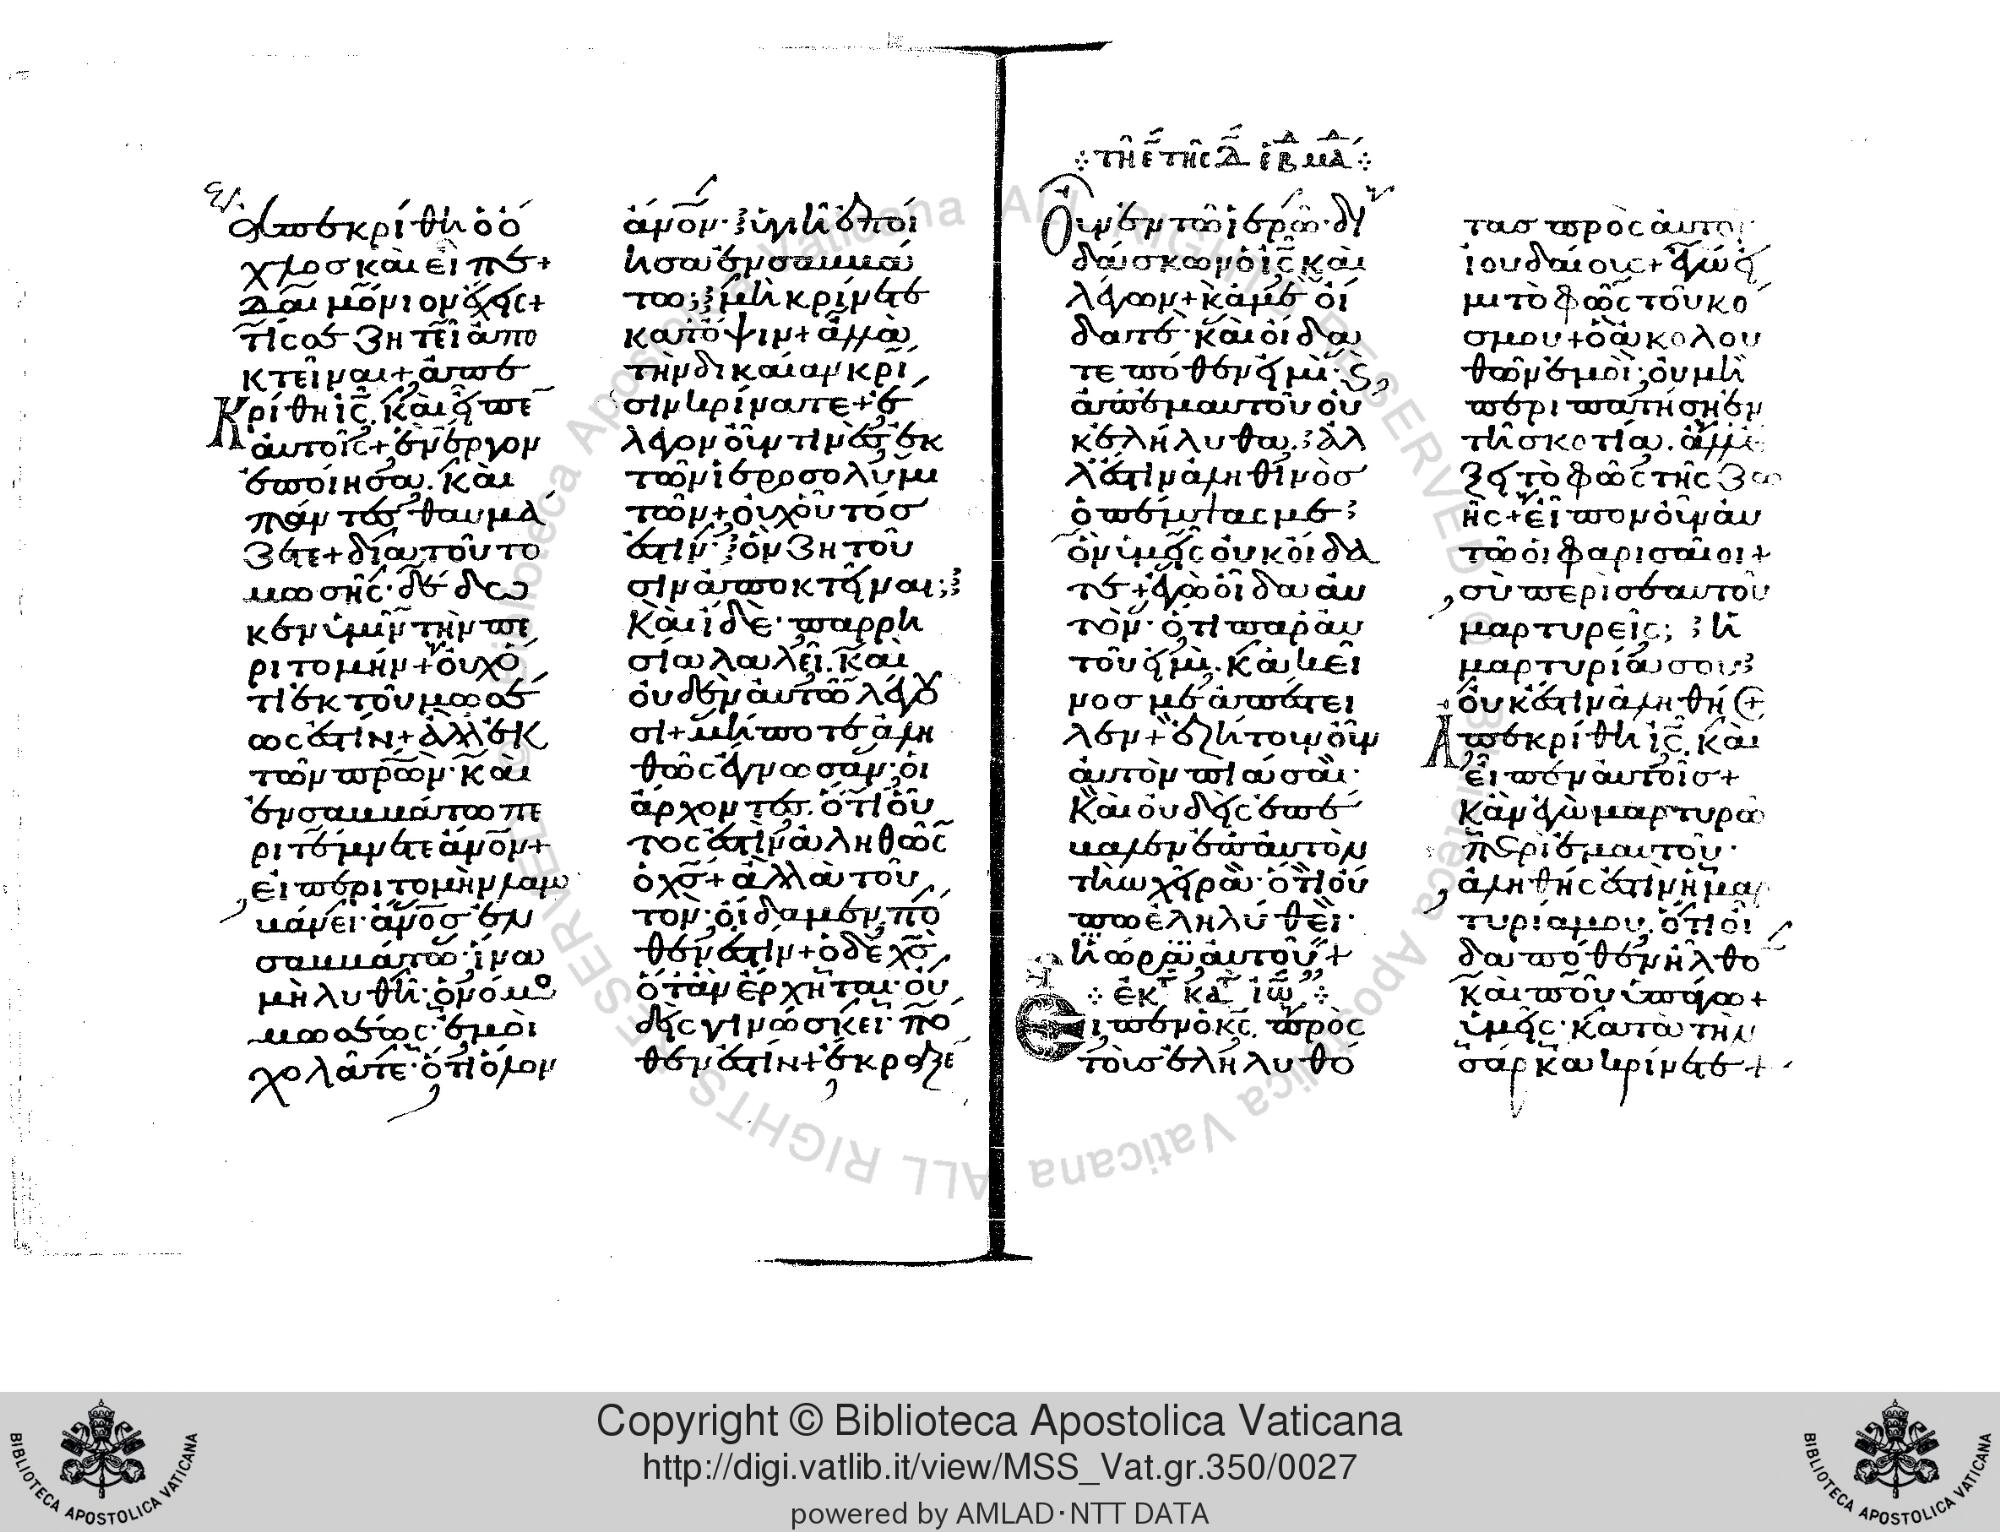 ἀπεκρίθη ὁ ὁ
χλος καὶ εἶπε+
δαιμόνιον ἔχεις+
τίς σε ζητεῖ ἀπο
κτεῖναι+ ἀπε
κρίθη ἰς̅. καὶ εἶπε
αὐτοῖς+ ἓν ἔργον
ἐποίησα. καὶ
πάντες θαυμά
ζετε+ διατοῦτο
μωσῆς· δέδω
κεν ὑμῖν τὴν πε
ριτομήν+ οὐχ ὅ
τι ἐκ τοῦ μωσέ
ως ἐστὶν+ ἀλλ' ἐκ
τῶν πρ̅ων· καὶ
ἐν σαββάτω πε
ριτέμνετε ἀν̅ον+
εἰ περιτομὴν λαμ
βάνει ἀν̅ος ἐν
σαββάτω· ἵνα
μὴ λυθῆ· ὁ νόμο
μωσέως· ἐμοὶ
χολᾶτε· ὅτι ὅλον
ἀν̅ον· ὑγιῆ ἐποί
ησα ἐν σαββά
τω; μὴ κρίνετε
κατ' ὄψιν+ ἀλλὰ
τὴν δικαίαν κρί
σιν κρίνατε+ ἔ
λεγον οὖν τινὲς ἐκ
τῶν ἱεροσολυμι
τῶν+ οὐχ οὗτός
ἐστιν· ὃν ζητοῦ
σιν ἀποκτεῖναι;
Καὶ ἴδε· παρρη
σία λαλεῖ. καὶ
οὐδὲν αὐτῶ λέγου
σι+ μήποτε ἀλη
θῶς ἔγνωσαν· οἱ
ἄρχοντες. ὅτι οὗ
τος ἐστὶν ἀληθῶς
ὁ χς̅+ ἀλλὰ τοῦ
τον· οἴδαμεν πό
θεν ἐστίν+ ὁ δὲ χς̅
ὅταν ἔρχηται· οὐ
δεὶς γινώσκει· πό
θεν ἐστὶν+ ἔκραξε
τῆ ε̅ τῆς δ̅ ἑβδμάδ
οὖν ἐν τῶ ἱερῶ· δι
δάσκων ὁ ἰς̅ καὶ
λέγων+ κἀμὲ οἴ
δατε· καὶ οἴδα
τε πόθεν εἰμί· καὶ
ἀπ' ἐμαυτοῦ οὐ
κ ἐλήλυθα. ἀλ
λ' ἔστιν ἀληθινὸς
ὁ πέμψας με
ὃν ὑμεῖς οὐκ οἴδα
τε+ ἐγὼ οἶδα αὐ
τὸν· ὅτι παρ' αὐ
τοῦ εἰμι. κἀκεῖ
νος με ἀπέστει
λεν+ ἐζήτουν οὖν
αὐτὸν πιάσαι·
Καὶ οὐδεὶς ἐπέ
βαλεν ἐπ' αὐτὸν
τὴν χεῖρα· ὅτι οὔ
πω ἐληλύθει·
ἡ ὥρα αὐτοῦ+
ἐκ τ κατ ἰω
Εἶπεν ὁ κς̅. πρὸς
τοὺς ἐληλυθό
τας πρὸς αὐτον
ἰουδαίους+ ἐγώ εἰ
μι τὸ φῶς τοῦ κό
σμου+ ὁ ἀκολου
θῶν ἐμοὶ· οὐ μὴ
περιπατήση ἐν
τῆ σκοτία. ἀλλ' ἕ
ξει τὸ φῶς τῆς ζω
ῆς+ εἶπον οὖν αὐ
τῶ οἱ φαρισαῖοι+
σὺ περὶ σεαυτοῦ
μαρτυρεῖς; ἡ
μαρτυρία σου
οὐκ ἔστιν ἀληθής+
ἀπεκρίθη ἰς̅. καὶ
εἶπεν αὐτοῖς+
Κἂν ἐγὼ μαρτυρῶ
περὶ ἐμαυτοῦ·
ἀληθής ἐστιν ἡ μαρ
τυρία μου. ὅτι οἶ
δα πόθεν ἦλθο
καὶ ποῦ ὑπάγω+
ὑμεῖς· κατὰ τὴν
σάρκα κρίνετε+
Copyright © Biblioteca Apostolica Vaticana
http://digi.vatlib.it/view/MSS_Vat.gr.350/0027
powered by AMLAD·NTT DATA
BIBLIOTECA APOSTOLICA VATICANA
BIBLIOTECA APOSTOLICA VATICANA